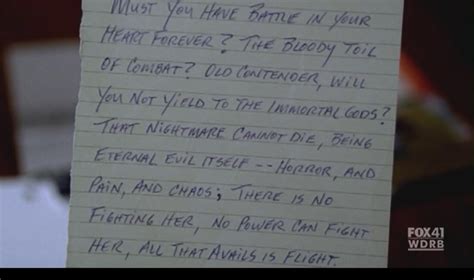 MUST YOU HAVE BATTLE IN YOUR
HEART FOREVER? THE BLOODY TOIL
OF COMBAT? OLD CONTENDER, WILL
YOU NOT YIELD TO THE IMMORTAL GODS?
THAT NIGHTMARE CANNOT DIE, BEING
ETERNAL EVIL ITSELF -- HORROR, AND
PAIN, AND CHAOS; THERE IS NO
FIGHTING HER, NO POWER CAN FIGHT
HER, ALL THAT AVAILS IS FLIGHT.
FOX41
WDRB